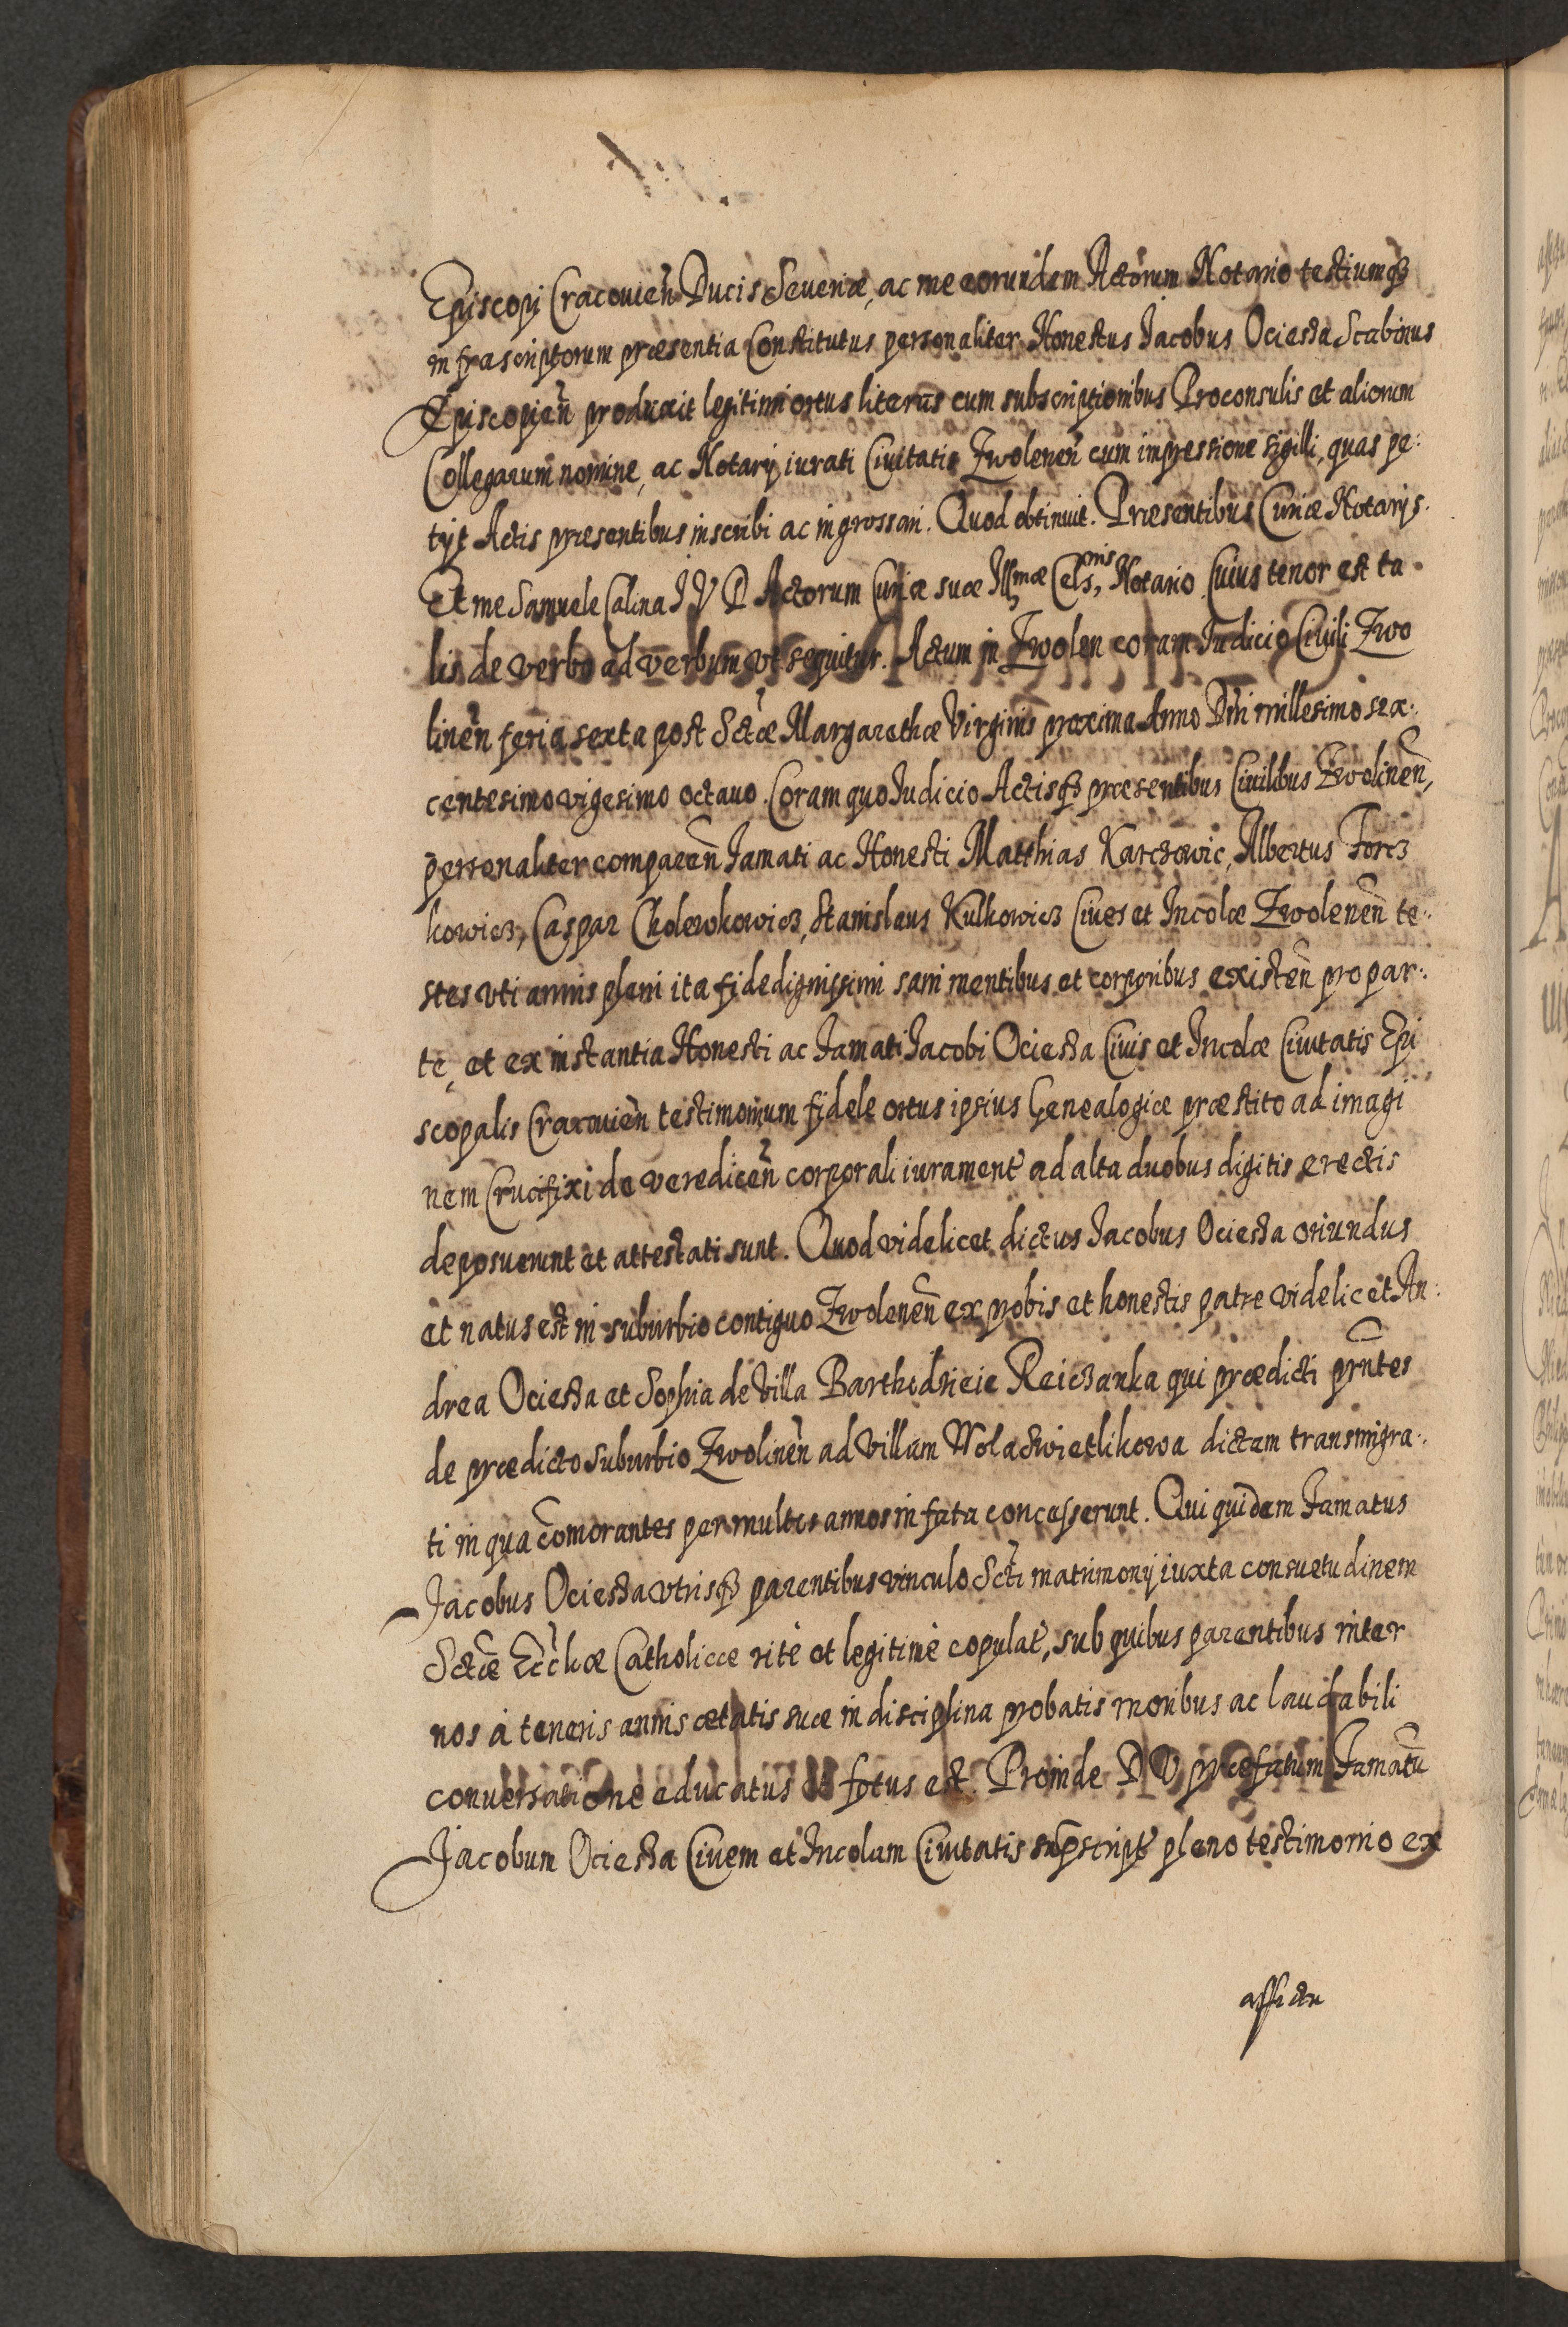 Episcopi Cracouien̄ Ducis Seueriæ, ac me eorundem Actorum Notario testiumqȝ
infrascriptorum præsentia Constitutus personaliter Honestus Jacobus Ociessa Scabinus
Episcopien̄ produxit legitimi ortus literas cum subscriptionibus Proconsulis et aliorum
Collegarum nomine, ac Notarij iurati Ciuitatis Zwolenen̄ cum impressione sigilli, quas pe:
tijt Actis præsentibus inscribi ac ingrossari. Quod obtinuit. Præsentibus Curiæ Notarijs.
Et me Samuele Calina J V D Actorum Curiæ suæ Illmæ Celsnis, Notario. Cuius tenor est ta
lis de verbo ad verbum vt sequitur. Actum in Zwolen coram Judicio Ciuili Zwo
linen̄ feria sexta post Sctæ Margarethæ Virginis proxima Anno Dn̄i millesimo sex:
centesimo vigesimo octauo. Coram quo Judicio Actisqȝ præsentibus Ciuilibus Zwolinen̄,
personaliter comparen̄ Famati ac Honesti Matthias Karczowic, Albertus Forcz
kowicz, Caspar Cholewkowicz, Stanislaus Kulkowicz Ciues et Incolæ Zwolenen̄ te:
stes vti annis pleni ita fide dignissimi sani mentibus et corporibus existen̄ pro par:
te, et ex instantia Honesti ac Famati Jacobi Ociessa Ciuis et Incolæ Ciuitatis Epi
scopalis Cracouien̄ testimonium fidele ortus ipsius Genealogiæ præstito ad imagi
nem Crucifixi de veredicen̄ corporali iurament̄ ad alta duobus digitis erectis
deposuerunt et attestati sunt. Quod videlicet dictus Jacobus Ociessa oriundus
et natus est in suburbio contiguo Zwolenen̄ ex probis et honestis patre videlicet An:
drea Ociessa et Sophia de Villa Barthodzieie Reiczanka qui prædicti pr̄ntes
de prædicto suburbio Zwolinen̄ ad Villam Wola Swietlikowa dictam transmigra:
ti in qua com̄orantes per multos annos in fata concesserunt. Qui quidem Famatus
Jacobus Ociessa vtrisqȝ parentibus vinculo Scti matrimonij iuxta consuetudinem
Sctæ Eccl̄iæ Catholicæ ritè et legitimè copulat̄, sub quibus parentibus inter
nos à teneris annis ætatis suæ in disciplina probatis moribus ac laudabili
conuersatione educatus et fotus est. Proinde D V præfatum Famatū
Jacobum Ociessa Ciuem et Incolam Ciuitatis supscript̄ pleno testimonio ex